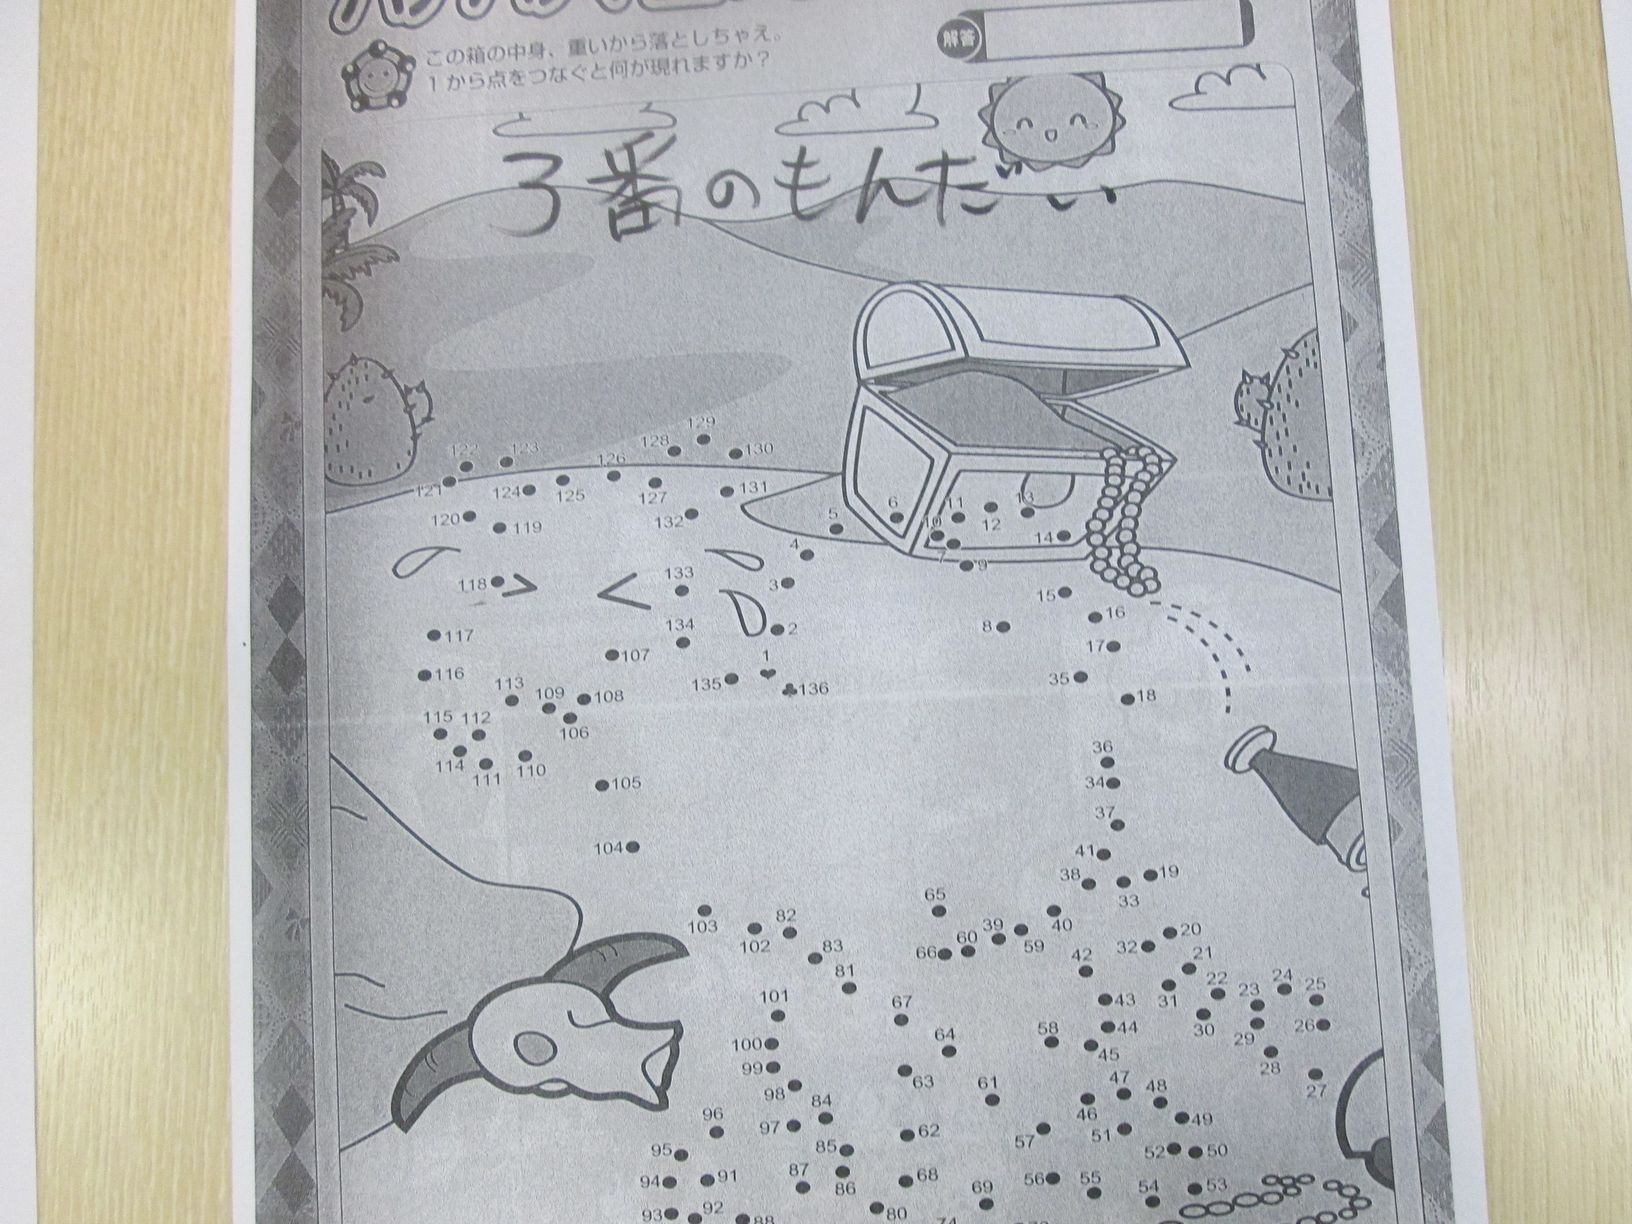 解答
この箱の中身、重いから落としちゃえ。
1から点をつなぐと何が現れますか？
3番のもんだい
129
122 123 128 130
126
121 124 125 127 131
120 119 132
5 6 11 13
10 12
4 7 14
9
118 133 3
15
16
117 134 2 8
107 1 17
116 135 136 35
113 109 108 18
115 112
106
114 111 110 36
105 34
37
104 41
38 19
65 33
103 82 39 40
102 60 59 20
83 66 42 32
81 21
22 24 25
101 67 43 31 23
100 64 58 44 30 26
99 45 29
98 63 61 47 48 28
84 46 27
96 97 62 57 51 49
95 85 52 50
94 91 87 86 68 56 55
69 54 53
93 92 88 80